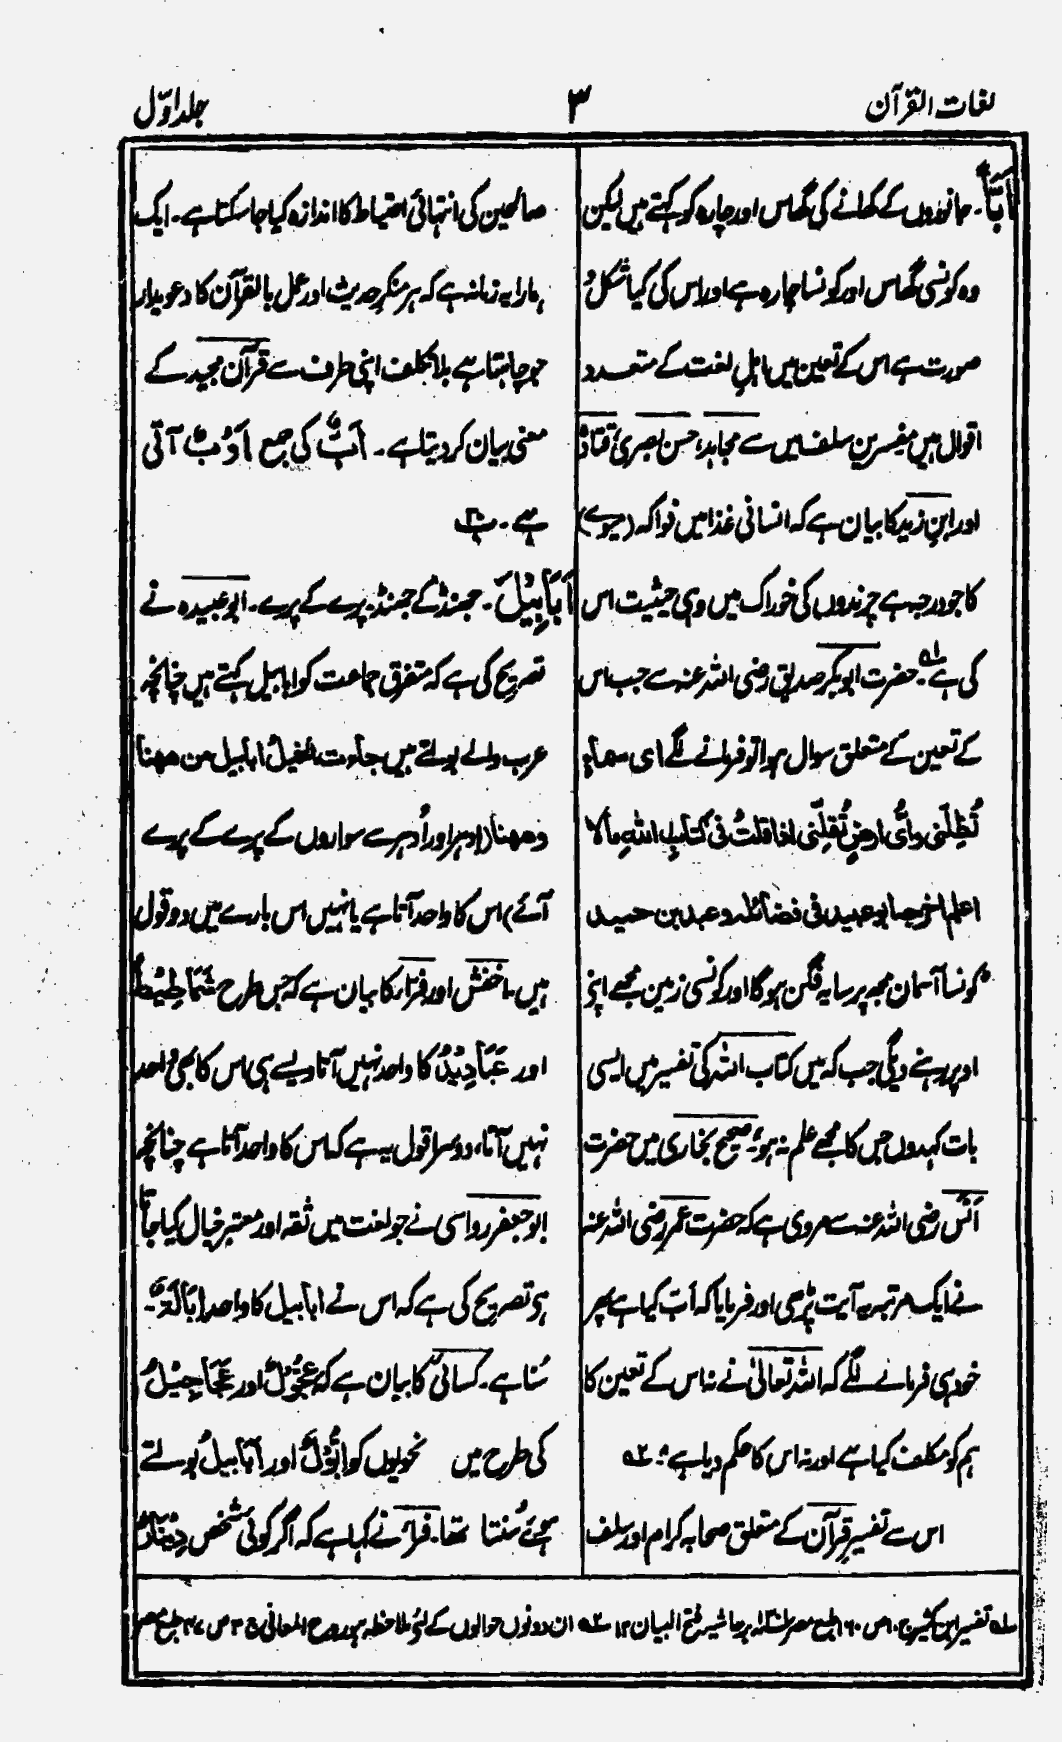 لغات القرآن
۳
جلد اوّل
اَبًّا۔ جانوروں کے کھانے کی گھاس اور چارہ کو کہتے ہیں لیکن
وہ کونسی گھاس اور کونسا چارہ ہے اور اس کی کیا شکل و
صورت ہے اس کے تعین میں اہلِ لغت کے متعدد
اقوال ہیں مفسرینِ سلف میں سے مجاہد، حسن بصری، قتادہ
اور ابنِ زید کا بیان ہے کہ انسانی غذا میں فواکہ (میوے)
کا جو درجہ ہے چرندوں کی خوراک میں وہی حیثیت اس
کی ہے لہ۔ حضرت ابوبکر صدیق رضی اللہ عنہ سے جب اس
کے تعین کے متعلق سوال ہوا تو فرمانے لگے ای سماء
تُظِلّنی وایُّ ارضٍ تُقِلّنی اذا قلتُ فی کتابِ اللہِ مالا
اعلم اخرجہ ابوعبید فی فضائلہ وعبد بن حمید
"کونسا آسمان مجھ پر سایہ فگن ہوگا اور کونسی زمین مجھے اپنے
اوپر رہنے دیگی جب کہ میں کتاب اللہ کی تفسیر میں ایسی
بات کہدوں جس کا مجھے علم نہ ہو" صحیح بخاری میں حضرت
انسؓ رضی اللہ عنہ سے مروی ہے کہ حضرت عمر رضی اللہ عنہ
نے ایک مرتبہ یہ آیت پڑھی اور فرمایا کہ اَبّ کیا ہے پھر
خود ہی فرمانے لگے کہ اللہ تعالیٰ نے نہ اس کے تعین کا
ہم کو مکلف کیا ہے اور نہ اس کا حکم دیا ہے۔ ۲ہ
اس سے تفسیرِ قرآن کے متعلق صحابہ کرام اور سلف
صالحین کی انتہائی احتیاط کا اندازہ کیا جا سکتا ہے۔ ایک
ہمارا یہ زمانہ ہے کہ ہر منکرِ حدیث اور عمل بالقرآن کا دعویدار
جو چاہتا ہے بلا تکلف اپنی طرف سے قرآن مجید کے
معنی بیان کر دیتا ہے۔ اَبٌّ کی جمع اَوُبٌّ آتی
ہے۔
اَبَابِیْلَ۔ جھنڈ کے جھنڈ، پرے کے پرے۔ ابوعبیدہ نے
تصریح کی ہے کہ متفرق جماعت کو ابابیل کہتے ہیں چنانچہ
عرب والے بولتے ہیں جاءت الخیلُ ابابیل من ھھنا
وھھنا (ادہر اور اُدہر سے سواروں کے پرے کے پرے
آئے) اس کا واحد آتا ہے یا نہیں اس بارے میں دو قول
ہیں۔ اخفش اور فرّاء کا بیان ہے کہ جس طرح شَمَاطِیْطُ
اور عَبَادِیْدُ کا واحد نہیں آتا ویسے ہی اس کا بھی واحد
نہیں آتا، دوسرا قول یہ ہے کہ اس کا واحد آتا ہے چنانچہ
ابوجعفر رواسی نے جو لغت میں ثقہ اور معتبر خیال کیا جاتا
ہے تصریح کی ہے کہ اس نے ابابیل کا واحد اِبَّالَۃٌ۔
سُنا ہے۔ کسائی کا بیان ہے کہ عِجَّوْلٌ اور عَجَاجِیْلُ
کی طرح میں نحویوں کو اِبَّوْلٌ اور اَبَابیلُ بولتے
ہوئے سُنتا تھا۔ فرّاء نے کہا ہے کہ اگر کوئی شخص دِیْنَارٌ
لہ تفسیر ابن کثیر ج ۱۰ ص ۱۶۰ طبع مصر بر حاشیہ فتح البیان ۱۲ ۲ہ ان دونوں حوالوں کے لئے ملاحظہ ہو روح المعانی ج ۳۰ ص ۴۷ طبع مصر